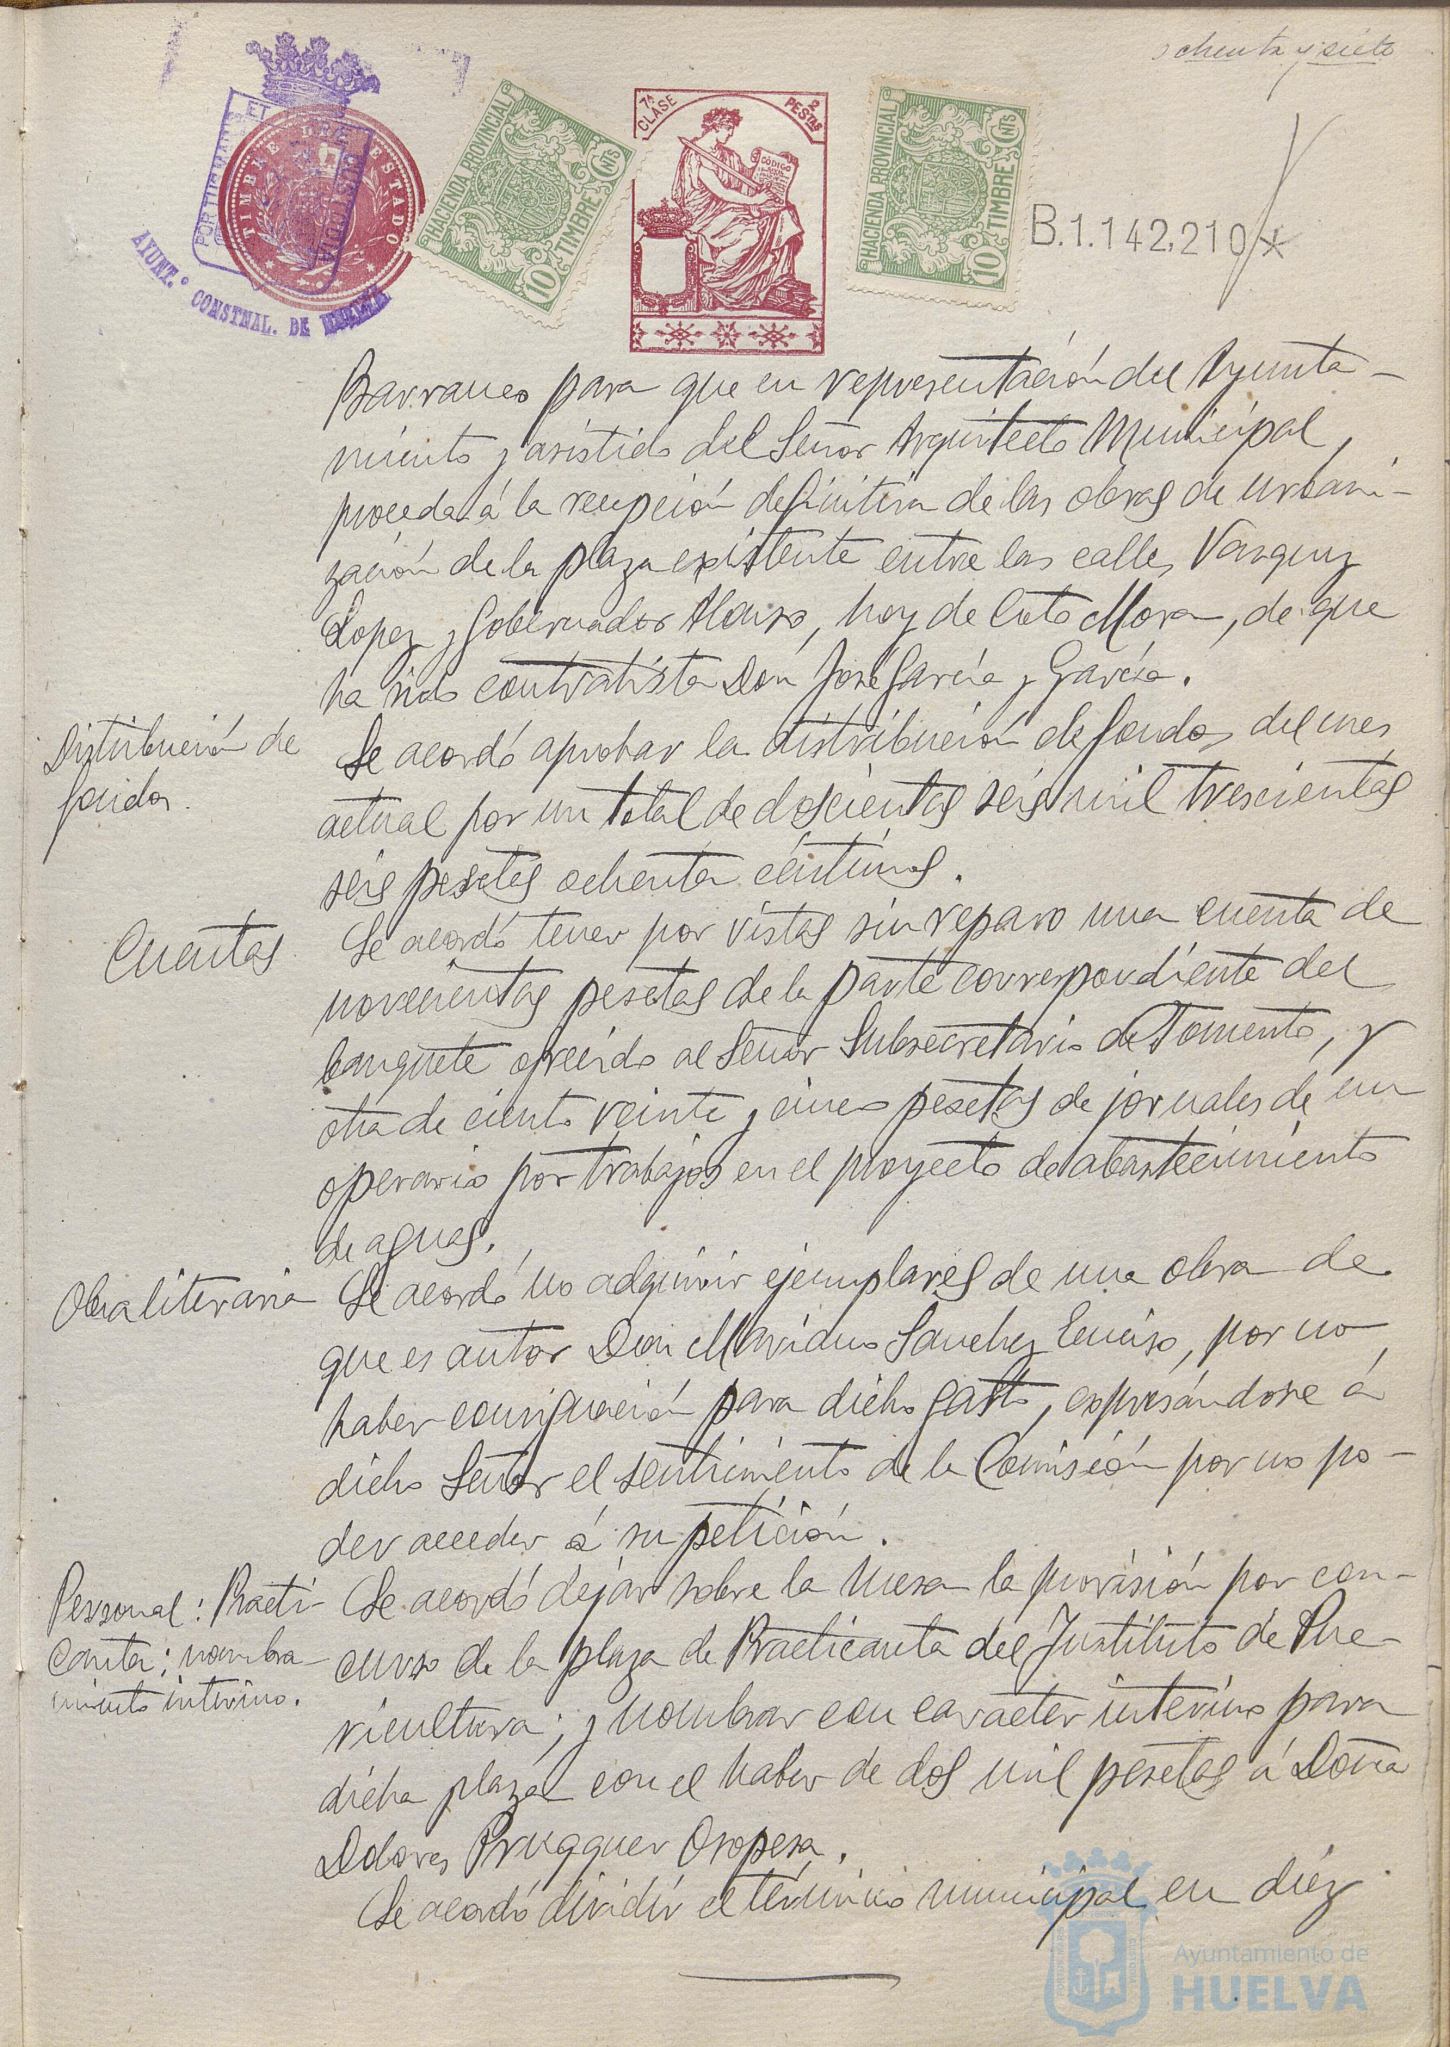 ochenta y siete
PORTUS MARIS ET TERRAE CUSTODIA
AYUNT.º CONSTNAL. DE HUELVA
TIMBRE DEL ESTADO
HACIENDA PROVINCIAL
10 CTS
TIMBRE
7ª CLASE
2 PESTAS
CÓDIGO
HACENDA PROVINCIAL
10 CTS
TIMBRE
B.1.142,210*
Barranco para que en representación del Ayunta-
miento y asistido del Señor Arquitecto Municipal,
proceda á la recepción definitiva de las obras de urbani-
zación de la plaza existente entre las calles Vazquez
Lopez y Gobernador Alonso, hoy de Coto Mora, de que
ha sido contratista Don José García y García.
Distribución de
fondos.
Se acordó aprobar la distribución de fondos del mes
actual por un total de doscientas seis mil trescientas
seis pesetas ochenta céntimos.
Cuentas
Se acordó tener por vistas sin reparo una cuenta de
novecientas pesetas de la parte correspondiente del
banquete ofrecido al Señor Subsecretario de Fomento, y
otra de ciento veinte y cinco pesetas de jornales de un
operario por trabajos en el proyecto de abastecimiento
de aguas.
Obra literaria
Se acordó no adquirir ejemplares de una obra de
que es autor Don Mariano Sanchez Enciso, por no
haber consignación para dicho gasto, expresándose á
dicho Señor el sentimiento de la Comisión por no po-
der acceder á su petición.
Personal: Practi-
canta; nombra-
miento interino.
Se acordó dejar sobre la mesa la provisión por con-
curso de la plaza de Practicanta del Instituto de Pue-
ricultura; y nombrar con caracter interino para
dicha plaza con el haber de dos mil pesetas á Doña
Dolores Brugguer Oropesa.
Se acordó dividir el término municipal en diez
Ayuntamiento de
HUELVA